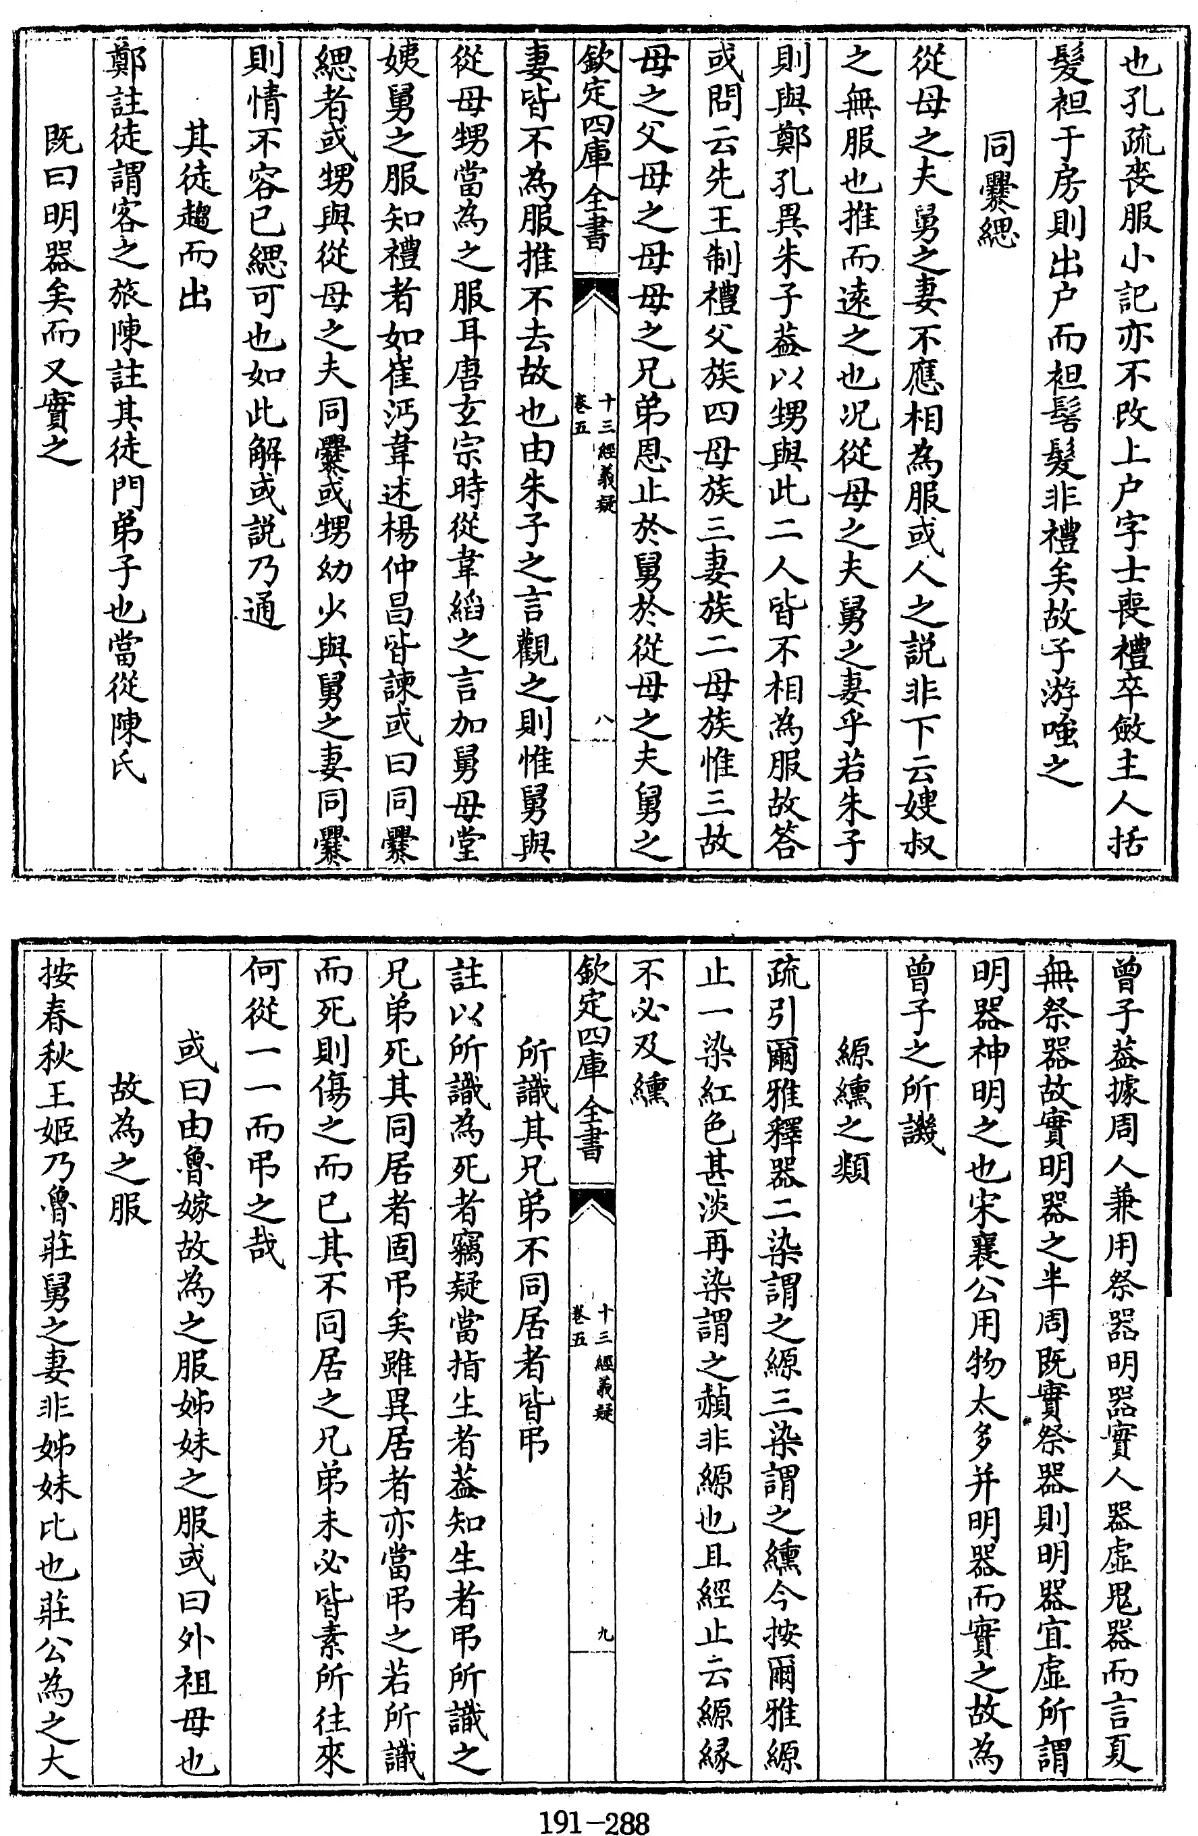 也孔疏喪服小記亦不改上户字士喪禮卒斂主人括
髮袒于房則出户而袒髻髮非禮矣故子游嗤之
同爨緦
從母之夫舅之妻不應相為服或人之説非下云嫂叔
之無服也推而遠之也况從母之夫舅之妻乎若朱子
則與鄭孔異朱子葢以甥與此二人皆不相為服故答
或問云先王制禮父族四母族三妻族二母族惟三故
母之父母之母母之兄弟恩止於舅於從母之夫舅之
欽定四庫全書
十三經義疑
卷五
八
妻皆不為服推不去故也由朱子之言觀之則惟舅與
從母甥當為之服耳唐玄宗時從韋縚之言加舅母堂
姨舅之服知禮者如崔沔韋述楊仲昌皆諫或曰同爨
緦者或甥與從母之夫同爨或甥幼少與舅之妻同爨
則情不容已緦可也如此解或説乃通
其徒趨而出
鄭註徒謂客之旅陳註其徒門弟子也當從陳氏
既曰明器矣而又實之
曾子葢據周人兼用祭器明器實人器虛鬼器而言夏
無祭器故實明器之半周既實祭器則明器宜虛所謂
明器神明之也宋襄公用物太多并明器而實之故為
曾子之所譏
縓纁之類
疏引爾雅釋器二染謂之縓三染謂之纁今按爾雅縓
止一染紅色甚淡再染謂之赬非縓也且經止云縓縁
不必及纁
欽定四庫全書
十三經義疑
卷五
九
所識其兄弟不同居者皆弔
註以所識為死者竊疑當指生者葢知生者弔所識之
兄弟死其同居者固弔矣雖異居者亦當弔之若所識
而死則傷之而已其不同居之兄弟未必皆素所往來
何從一一而弔之哉
或曰由魯嫁故為之服姊妹之服或曰外祖母也
故為之服
按春秋王姬乃魯莊舅之妻非姊妹比也莊公為之大
191-288